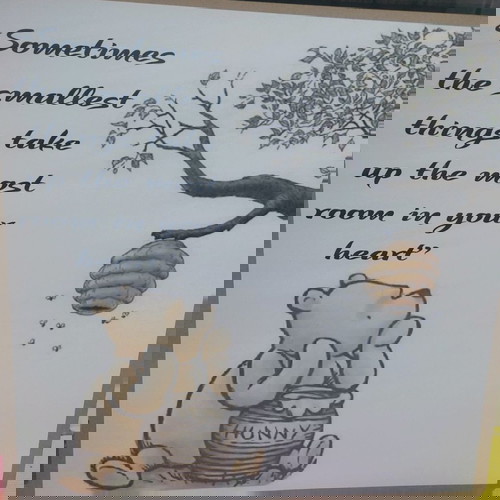 "Sometimes
the smallest
things take
up the most
room in your
heart"
HUNNY